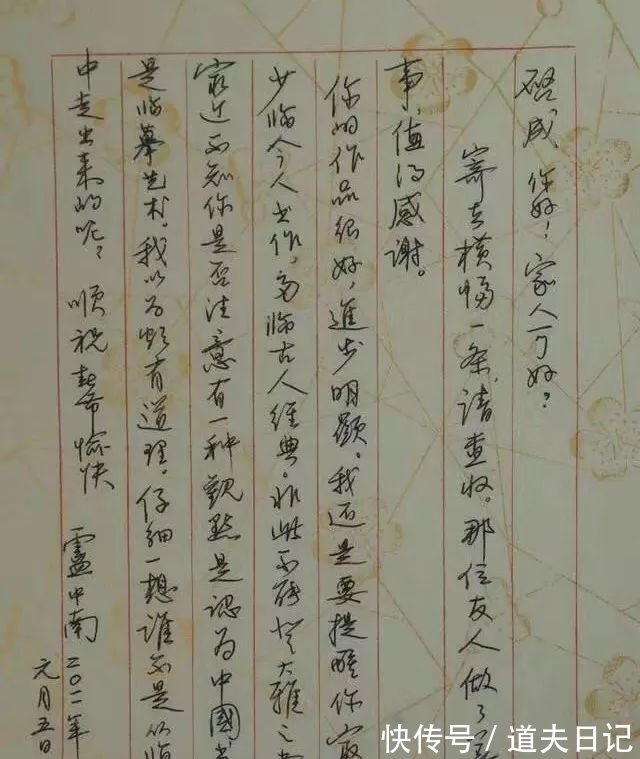 你好！家人可好？
寄去横幅一条，请查收。那位友人做了
事，值得感谢。
你的作品很好，進步明顯。我还是要提醒你最
少临今人书作，多临古人经典。非此不能登大雅之
最近不知你是否注意有一种觀點是認为中國书
是临摹艺术。我以为颇有道理。仔细一想谁不是从临
中走出来的呢？ 顺祝 愉快 盧中南二〇一一年
元月五日
快传号／道夫日记